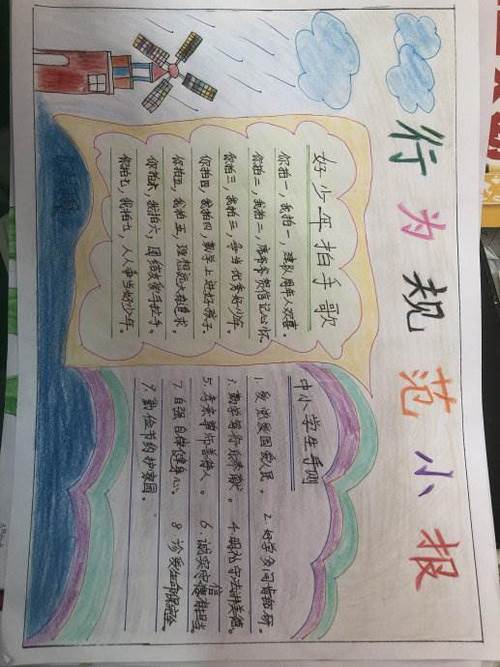 行为规范小报
好少年拍手歌
你拍一，我拍一，建队周年人欢喜。
你拍二，我拍二，爷爷贺信记心怀。
你拍三，我拍三，争当优秀好少年。
你拍四，我拍四，勤学上进好孩子。
你拍五，我拍五，理想远大有追求。
你拍六，我拍六，团结友爱手拉手。
你拍七，我拍七，人人争当好少年。
中小学生手则
1. 爱党爱国爱人民。 2. 好学多问肯钻研。
3. 勤学笃行乐奉献。 4. 明礼守法讲美德。
5. 孝亲尊师善待人。 6. 诚实守信有担当。
7 自强自律健身心。 8 珍爱生命保安全。
9. 勤俭节约护家园。